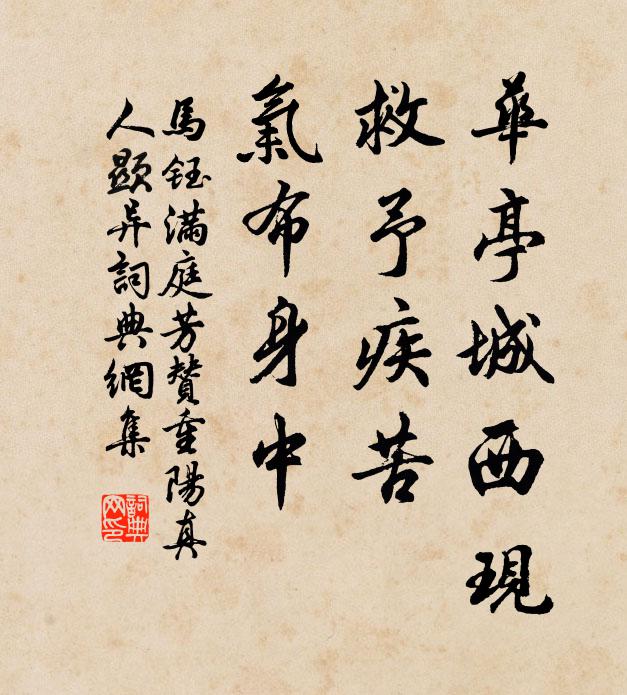 華亭城西現
救予疾苦
氣布身中
馬鈺滿庭芳贊重陽真
人顯异詞典網集
詞典
网印